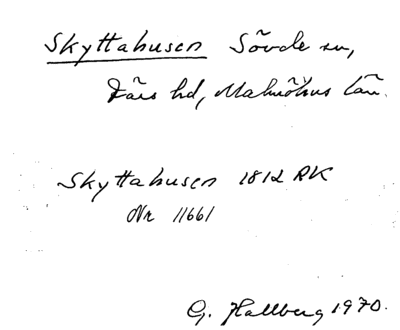 Skyttahusen Sövde sn,
Färs hd, Malmöhus län.
Skyttahusen 1812 RK
Nr 11661
G. Hallberg 1970.